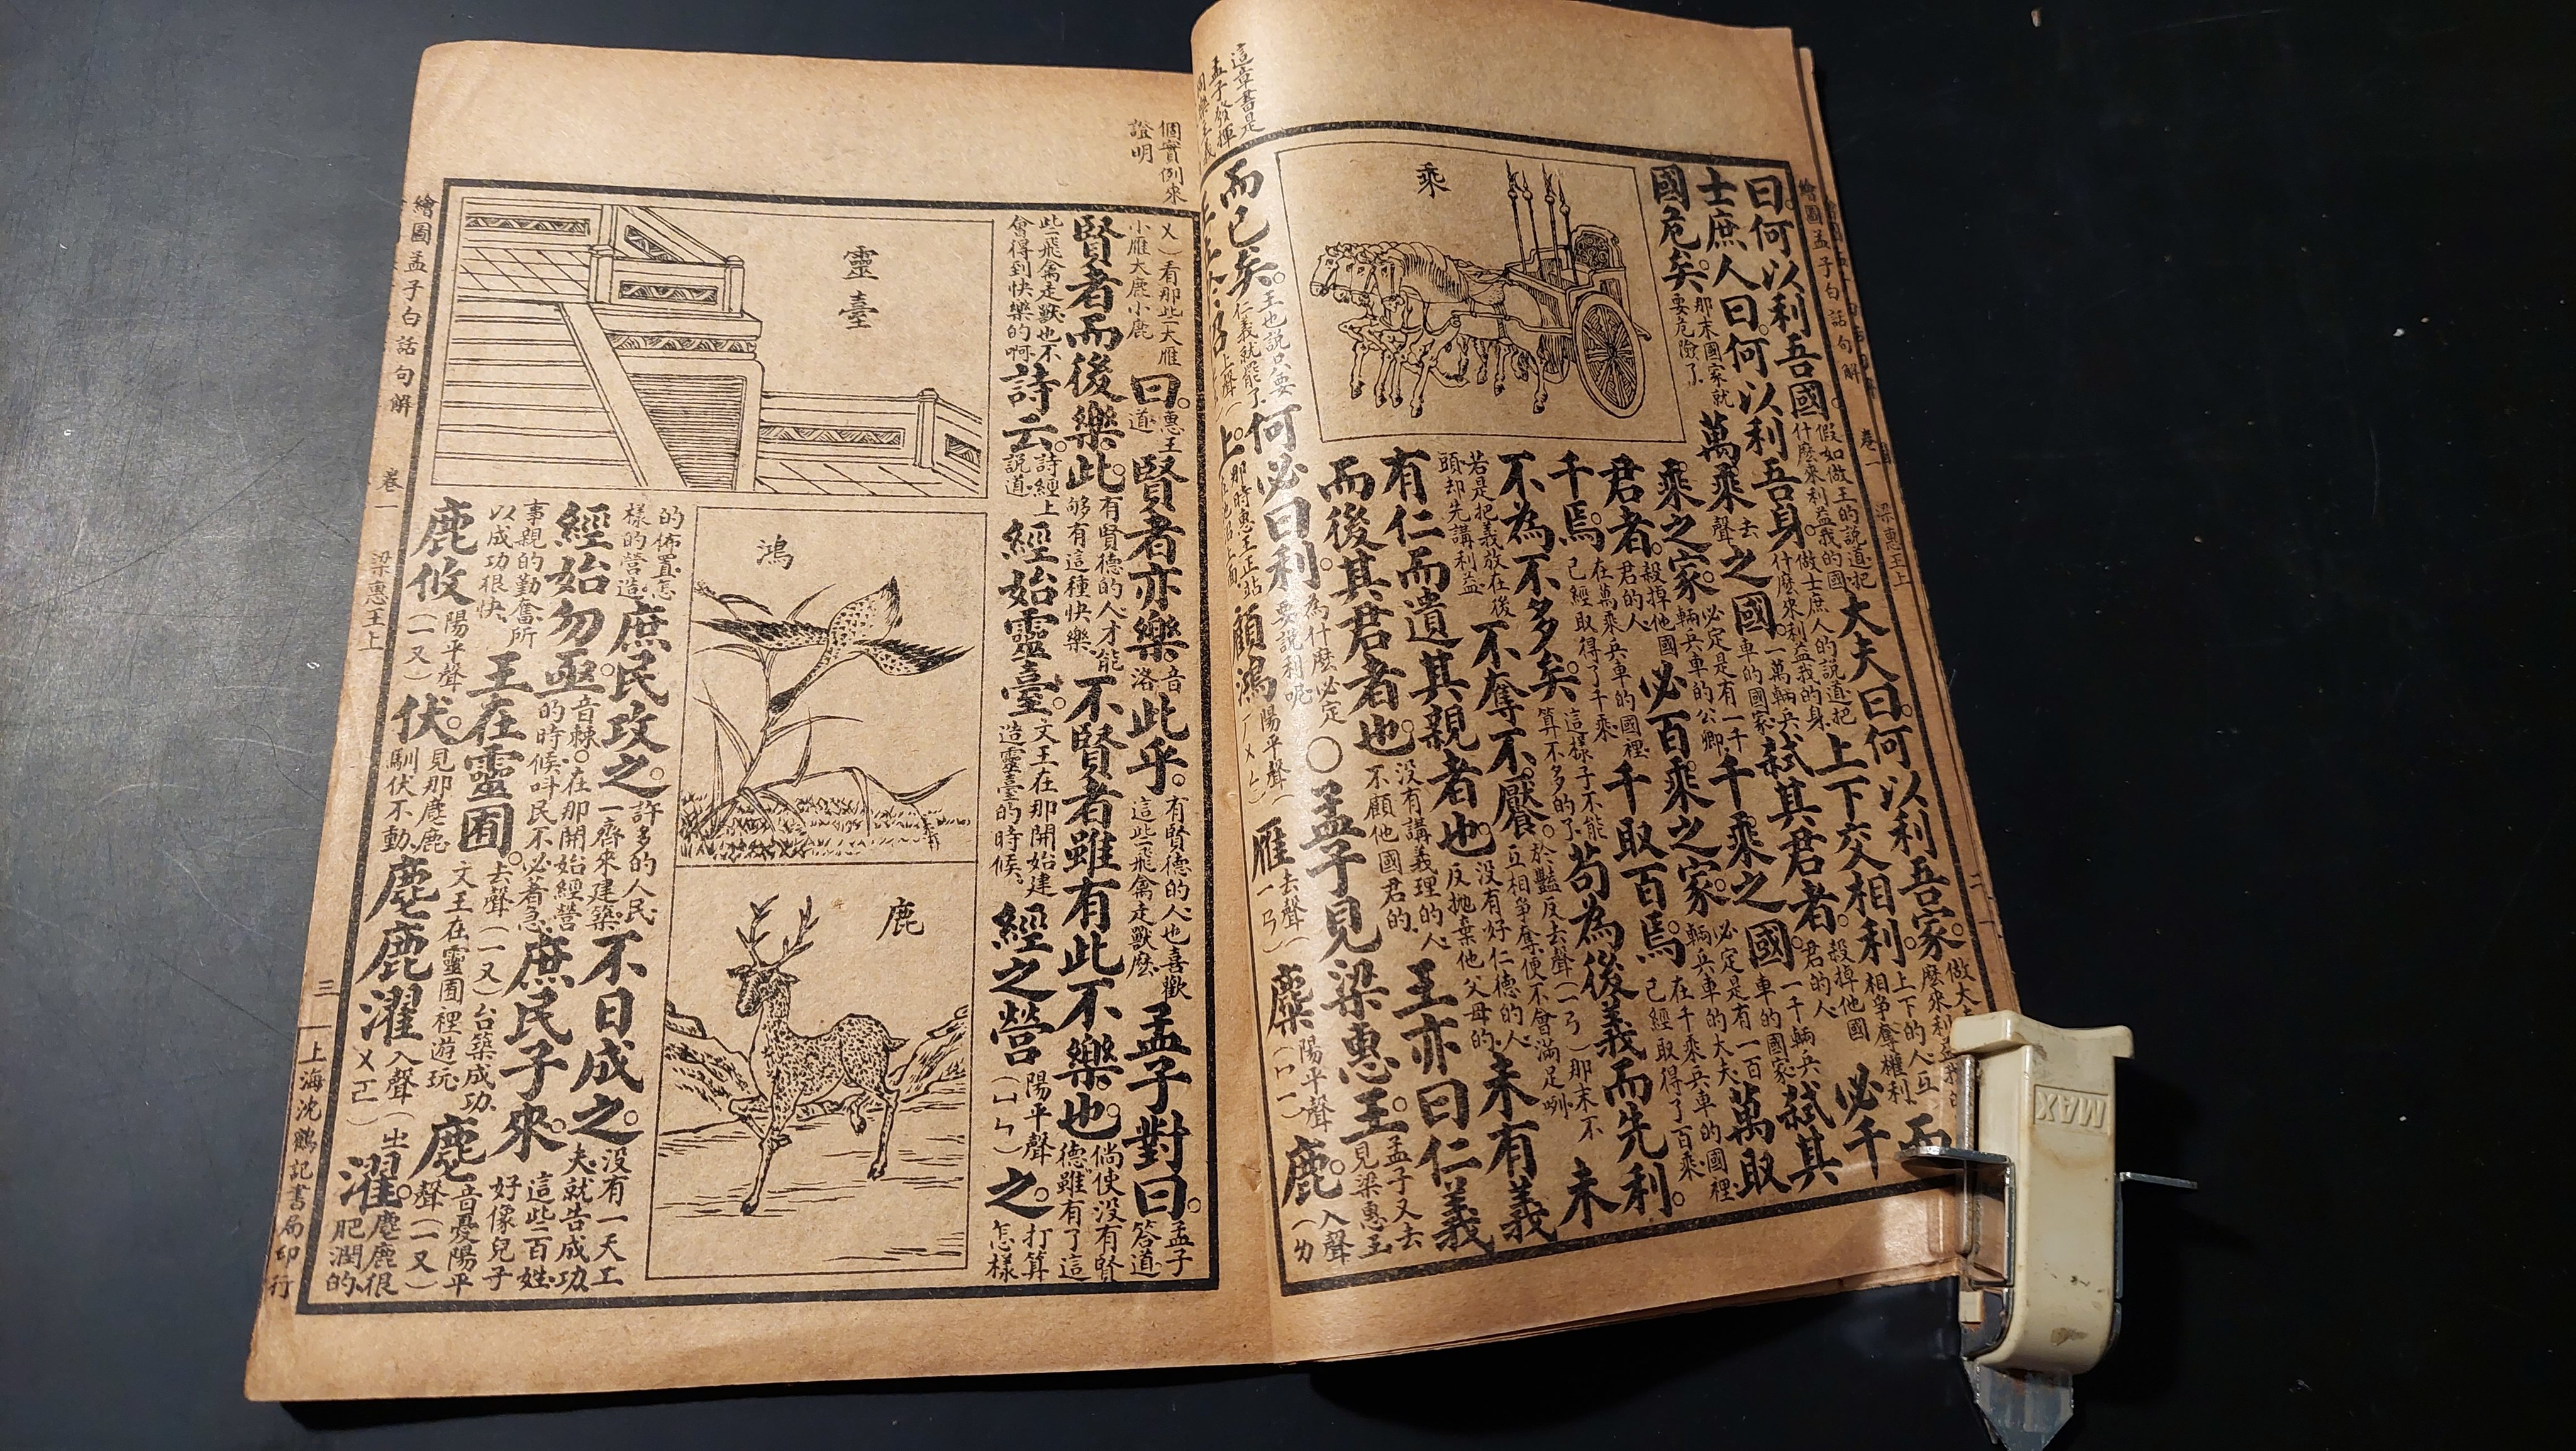 繪圖孟子白話句解 卷一 梁惠王上 二
曰。何以利吾國。假如做王的說道把什麼來利益我的國大夫曰。何以利吾家。做大
麼來利益我的
士庶人曰。何以利吾身。做士庶人的說道把什麼來利益我的身上下交相利。上下的人互相爭奪權利而
國危矣。那末國家就要危險了
乘
萬乘去聲之國。一萬輛兵車的國家弒其君者。殺掉他國君的人必千
乘之家。必定是有一千輛兵車的公卿千乘之國。一千輛兵車的國家弒其
君者。殺掉他國君的人必百乘之家。必定是有一百輛兵車的大夫萬取
千焉。在萬乘兵車的國裡已經取得了千乘千取百焉。在千乘兵車的國裡已經取得了百乘
不為不多矣。這樣子不能算不多的了苟為後義而先利。
若是把義放在後頭却先講利益不奪不饜。於豔反去聲(一ㄢ)那末不互相爭奪便不會滿足咧未
有仁而遺其親者也。沒有好仁德的人反拋棄他父母的未有義
而後其君者也。沒有講義理的人不顧他國君的王亦曰仁義
這章書是
孟子發揮
而已矣。王也說只要仁義就罷了何必曰利。為什麼必定要說利呢〇孟子見梁惠王。孟子又去見梁惠王
上聲上。那時惠王正站顧鴻陽平聲(ㄏㄨㄥ)雁去聲(一ㄢ)麋陽平聲(ㄇ一)鹿。入聲(ㄌ
個實例來
證明
ㄨ)看那些大雁小雁大鹿小鹿曰。惠王道賢者亦樂音洛此乎。有賢德的人也喜歡這些飛禽走獸麼孟子對曰。孟子答道
賢者而後樂此。有賢德的人才能够有這種快樂不賢者雖有此不樂也。倘使沒有賢德雖有了這
些飛禽走獸也不會得到快樂的啊詩云。詩經上說道經始靈臺。文王在那開始建造靈臺的時候。經之營陽平聲(ㄩㄣ)之。打算怎樣
靈臺
鴻
鹿
的佈置怎樣的營造。庶民攻之。許多的人民一齊來建築不日成之。沒有一天工夫就告成功
經始勿亟。音棘。在那開始經營的時候呌民不必著急庶民子來。這些百姓好像兒子
事親的勤奮所以成功很快王在靈囿。去聲(一又)台築成功文王在靈囿裡遊玩麀音憂陽平聲(一又)
鹿攸陽平聲(一又)伏。見那麀鹿馴伏不動麀鹿濯入聲(ㄓㄨㄛ)濯。麀鹿很肥潤的
繪圖孟子白話句解 卷一 梁惠王上 三 上海沈鶴記書局印行
MAX